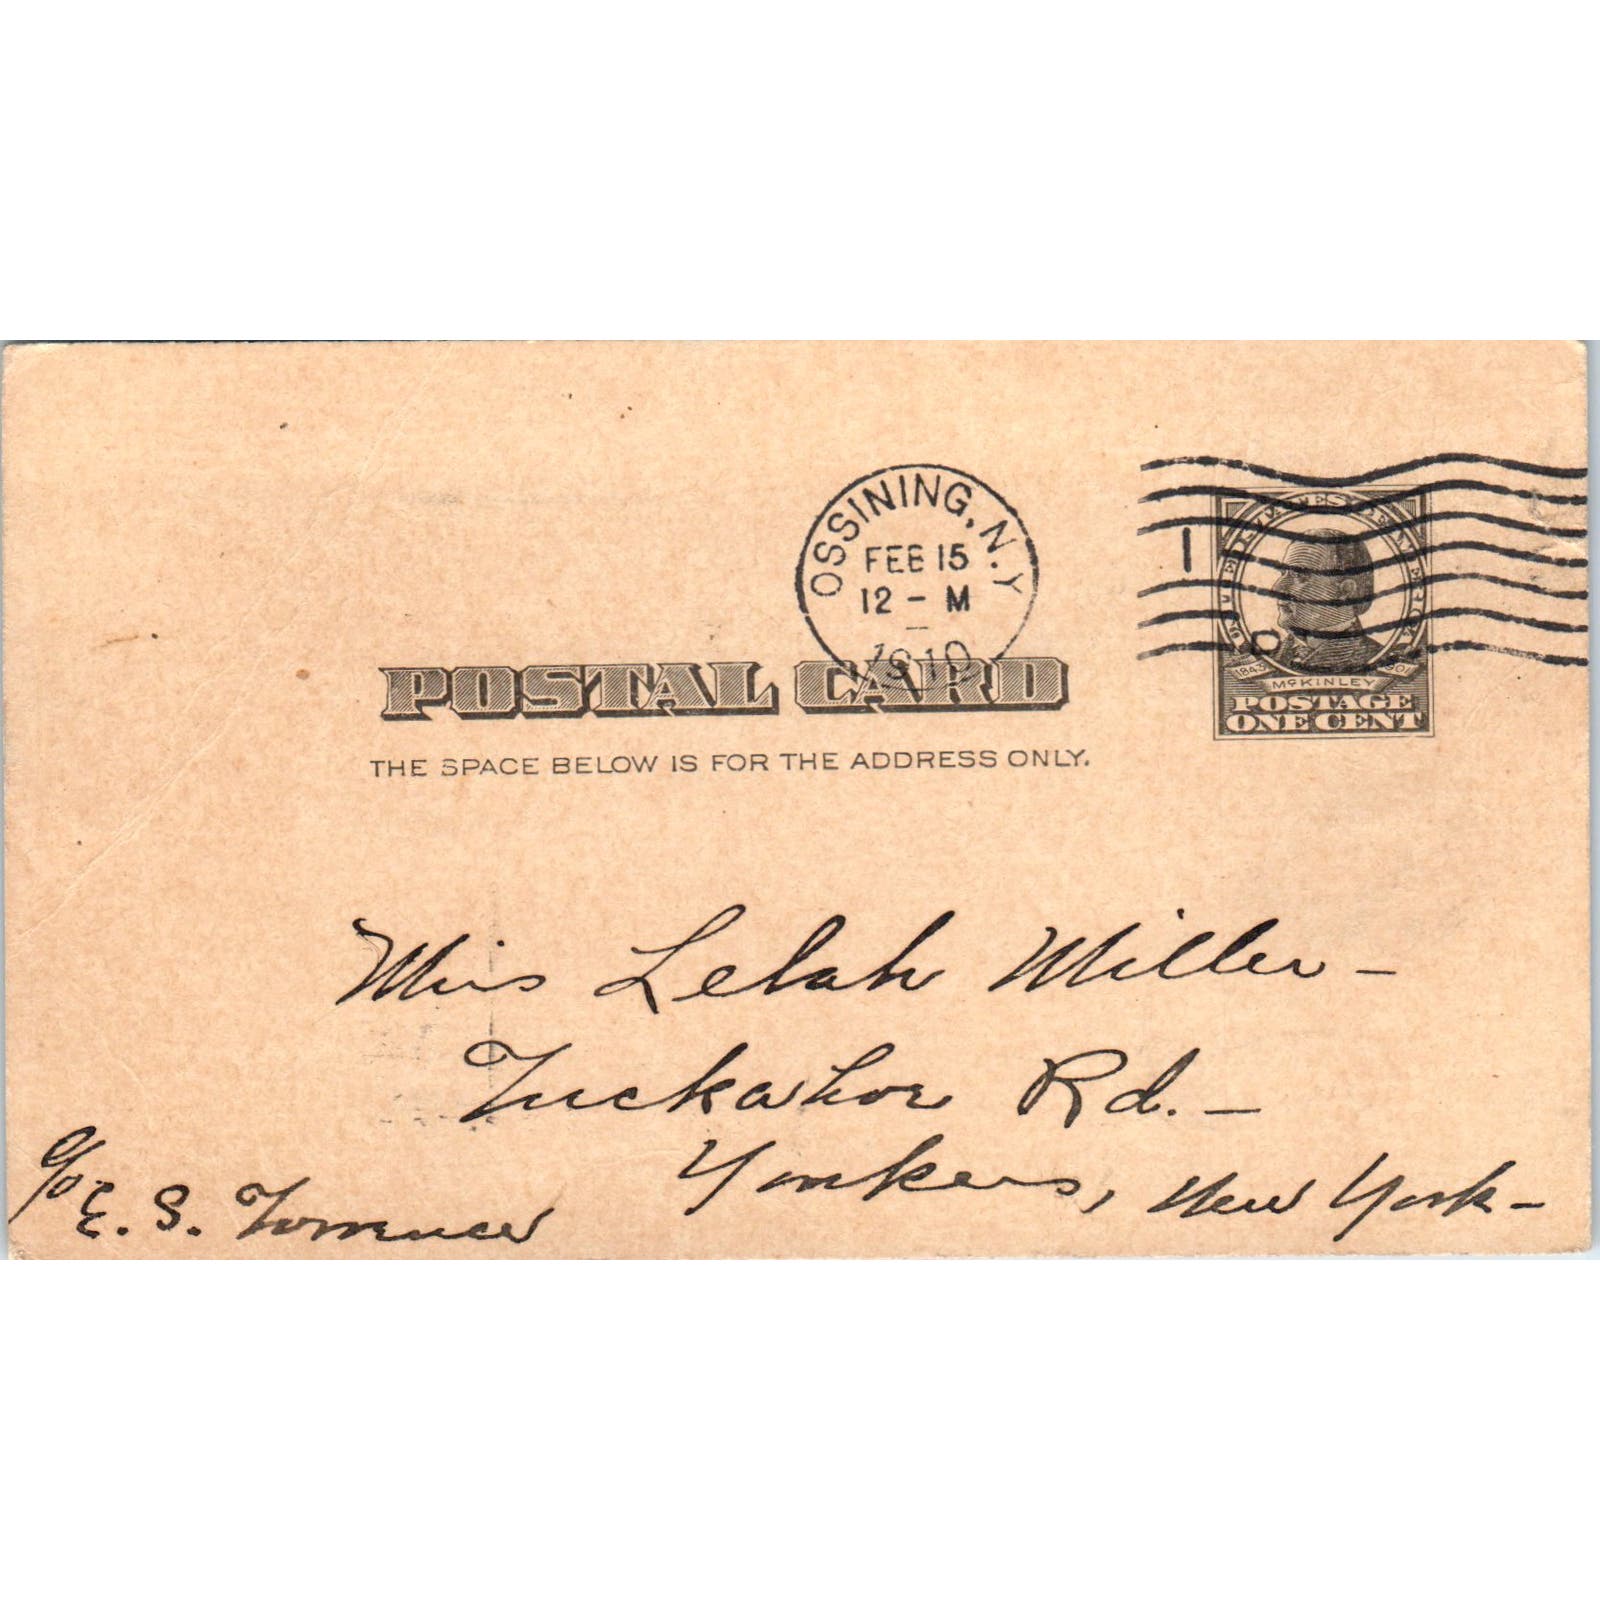 OSSINING, N.Y.
FEB 15
12 - M
1910
1
D
SERIES OF 1 PRESIDENT
1843
McKINLEY
POSTAGE
ONE CENT
POSTAL CARD
THE SPACE BELOW IS FOR THE ADDRESS ONLY.
Miss Lelah Miller -
Tuckahoe Rd. -
Yonkers, New York -
c/o E. S. Torrence